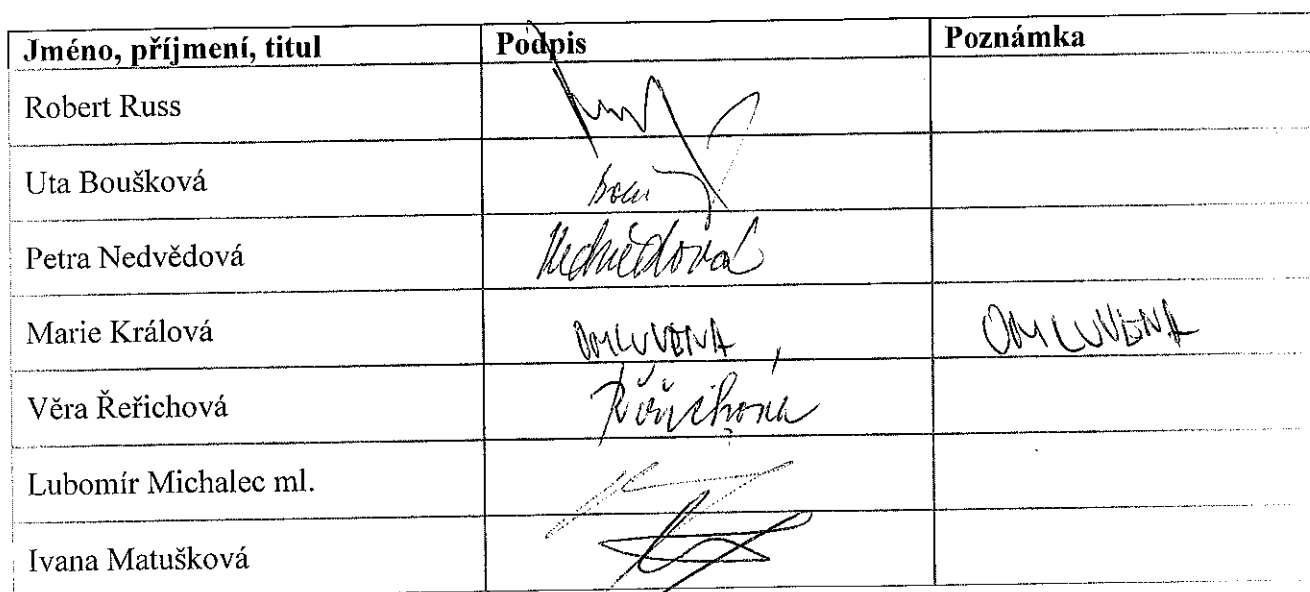 Jméno, příjmení, titul Podpis Poznámka
Robert Russ
Uta Boušková
Petra Nedvědová Nedvědová
Marie Králová OMLUVENA OMLUVENA
Věra Řeřichová Řeřichová
Lubomír Michalec ml.
Ivana Matušková